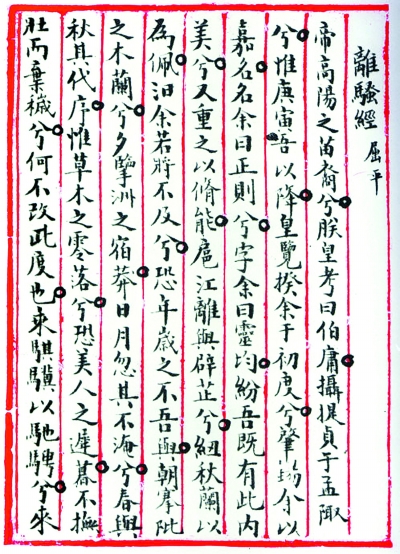 離騷經 屈平
帝高陽之苗裔兮朕皇考曰伯庸攝提貞于孟陬
兮惟庚寅吾以降皇覽揆余于初度兮肇錫余以
嘉名名余曰正則兮字余曰靈均紛吾既有此內
美兮又重之以脩能扈江離與辟芷兮紉秋蘭以
為佩汨余若將不及兮恐年歲之不吾與朝搴阰
之木蘭兮夕擥洲之宿莽日月忽其不淹兮春與
秋其代序惟草木之零落兮恐美人之遲暮不撫
壯而棄穢兮何不改此度也乘騏驥以馳騁兮來